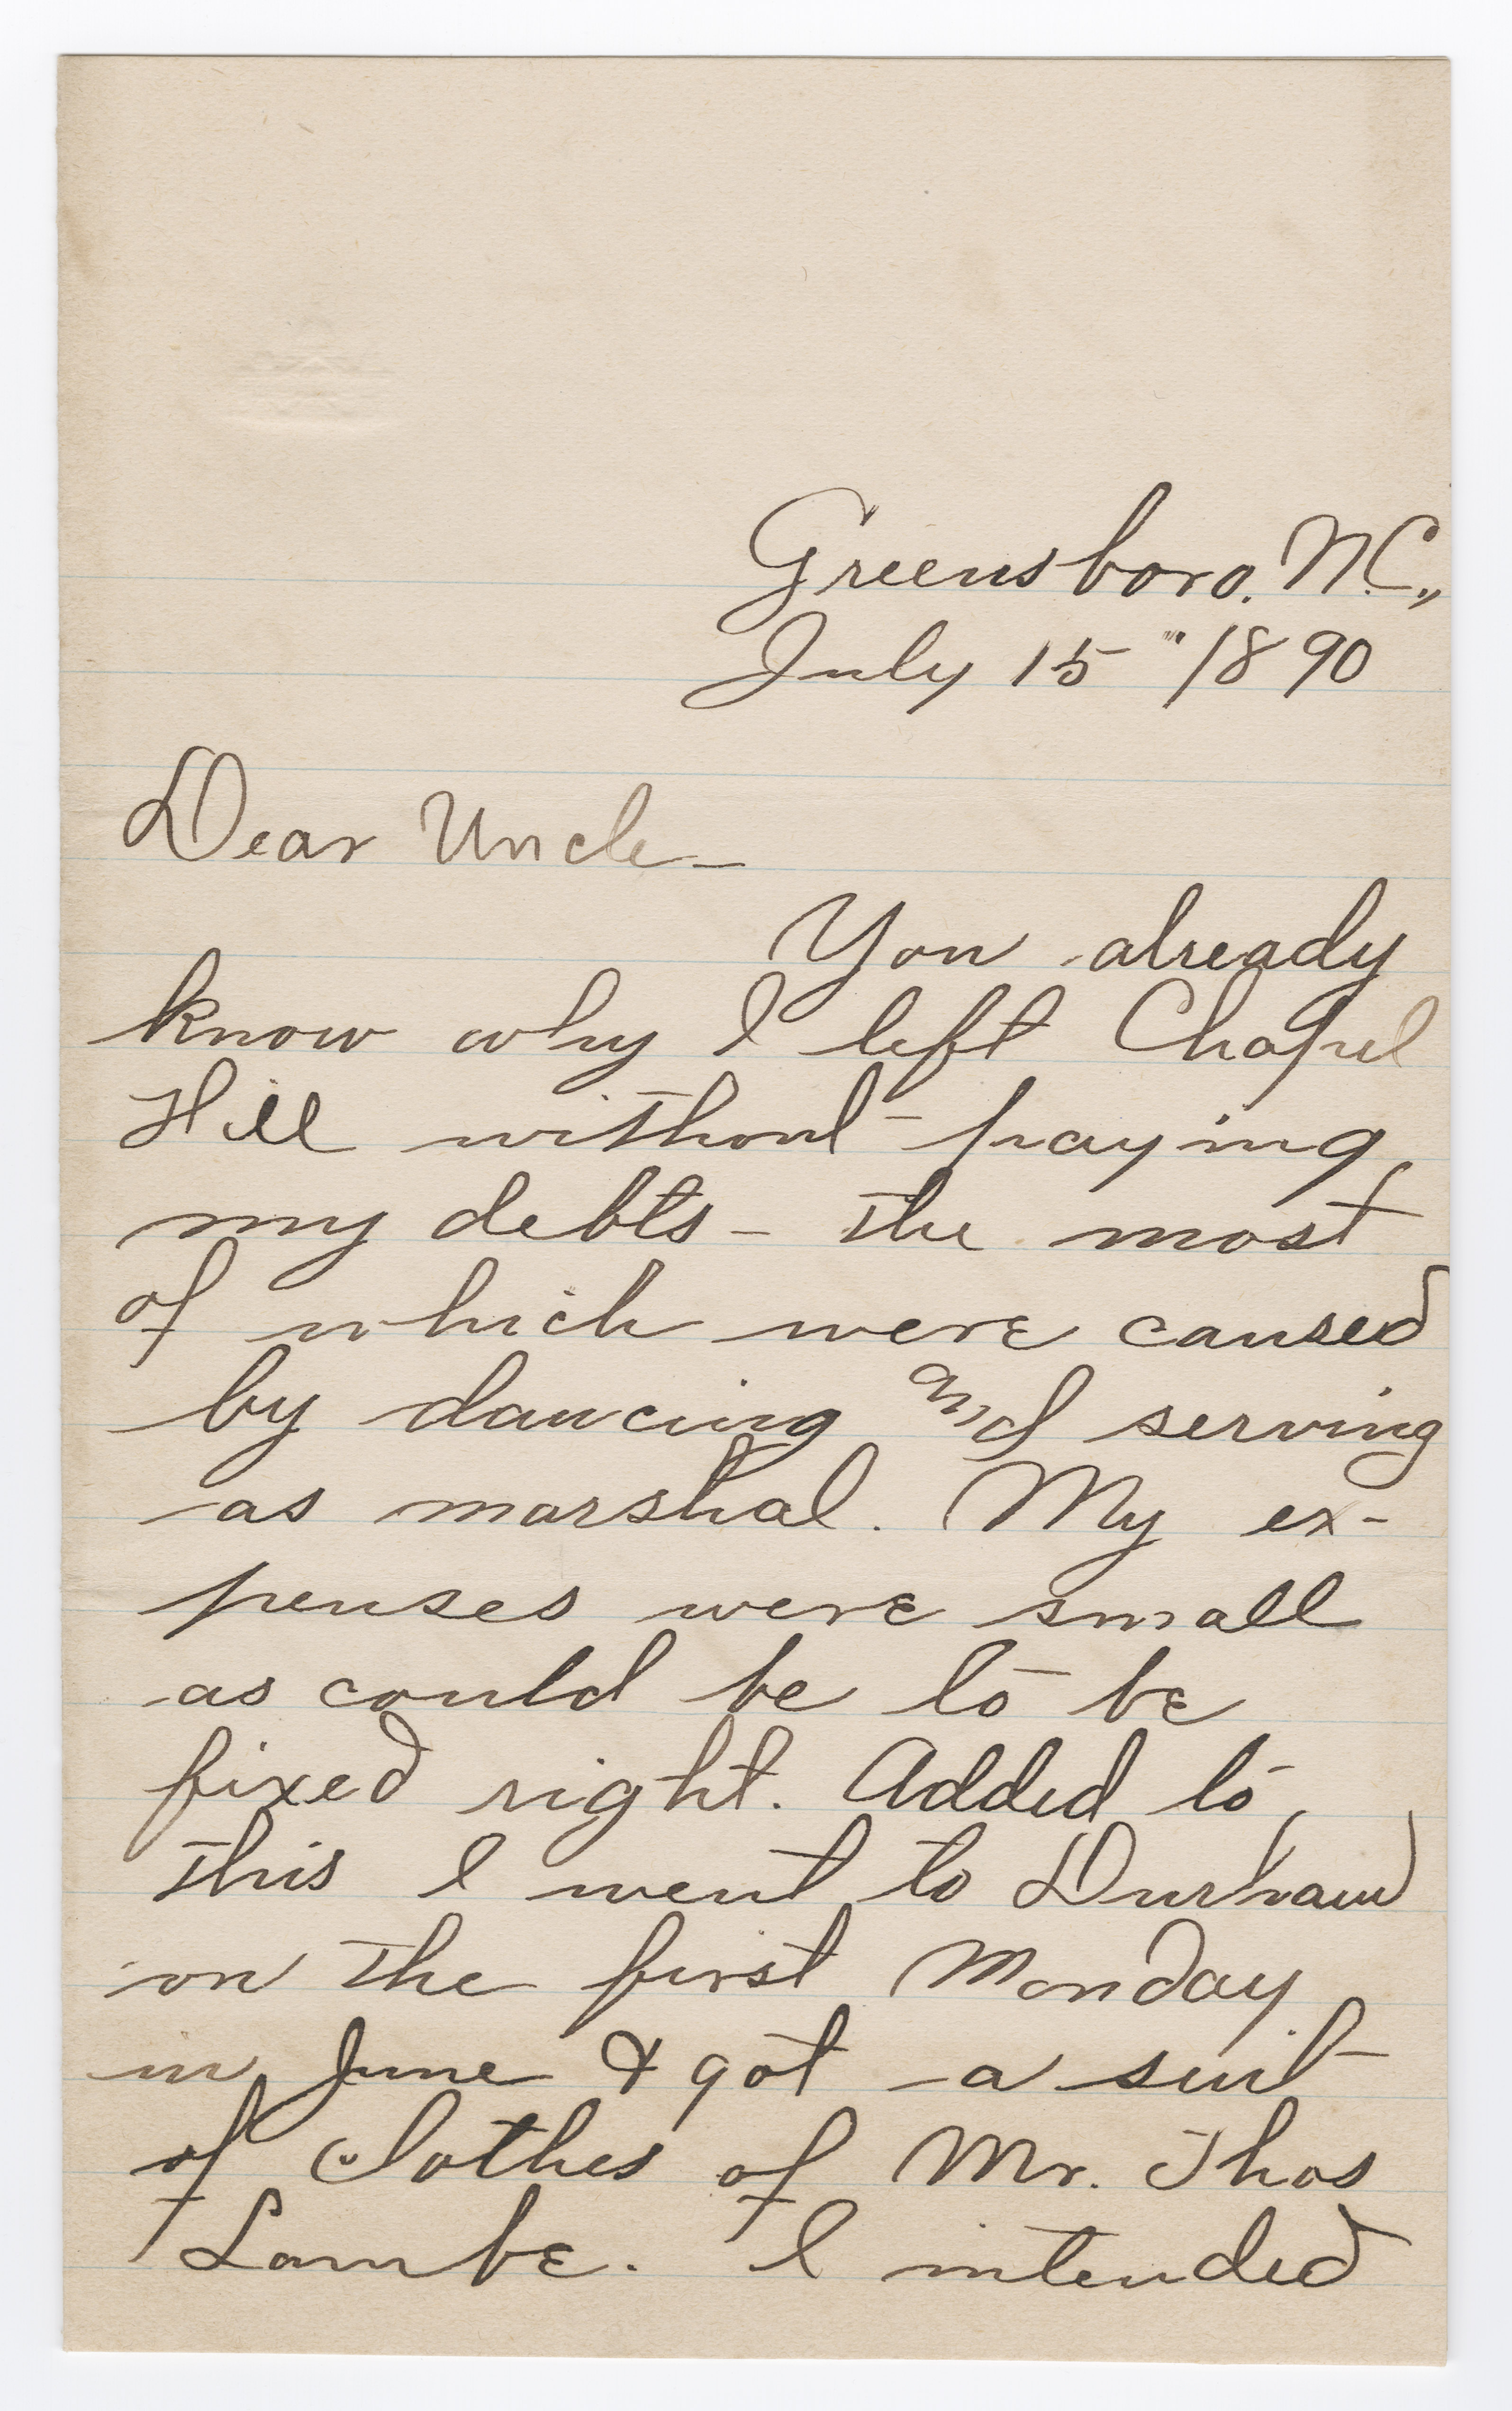 Greensboro. N.C.,,
July 15 "' 1890
Dear Uncle—
You already
know why I left Chapel
Hill without paying
my debts - the most
of which were caused
by dancing and serving
as marshal. My ex-
penses were small
as could be to be
fixed right. Added to
this I went to Durham
on the first Monday
in June & got a suit
of clothes of Mr. Thos
Lambe. I intended